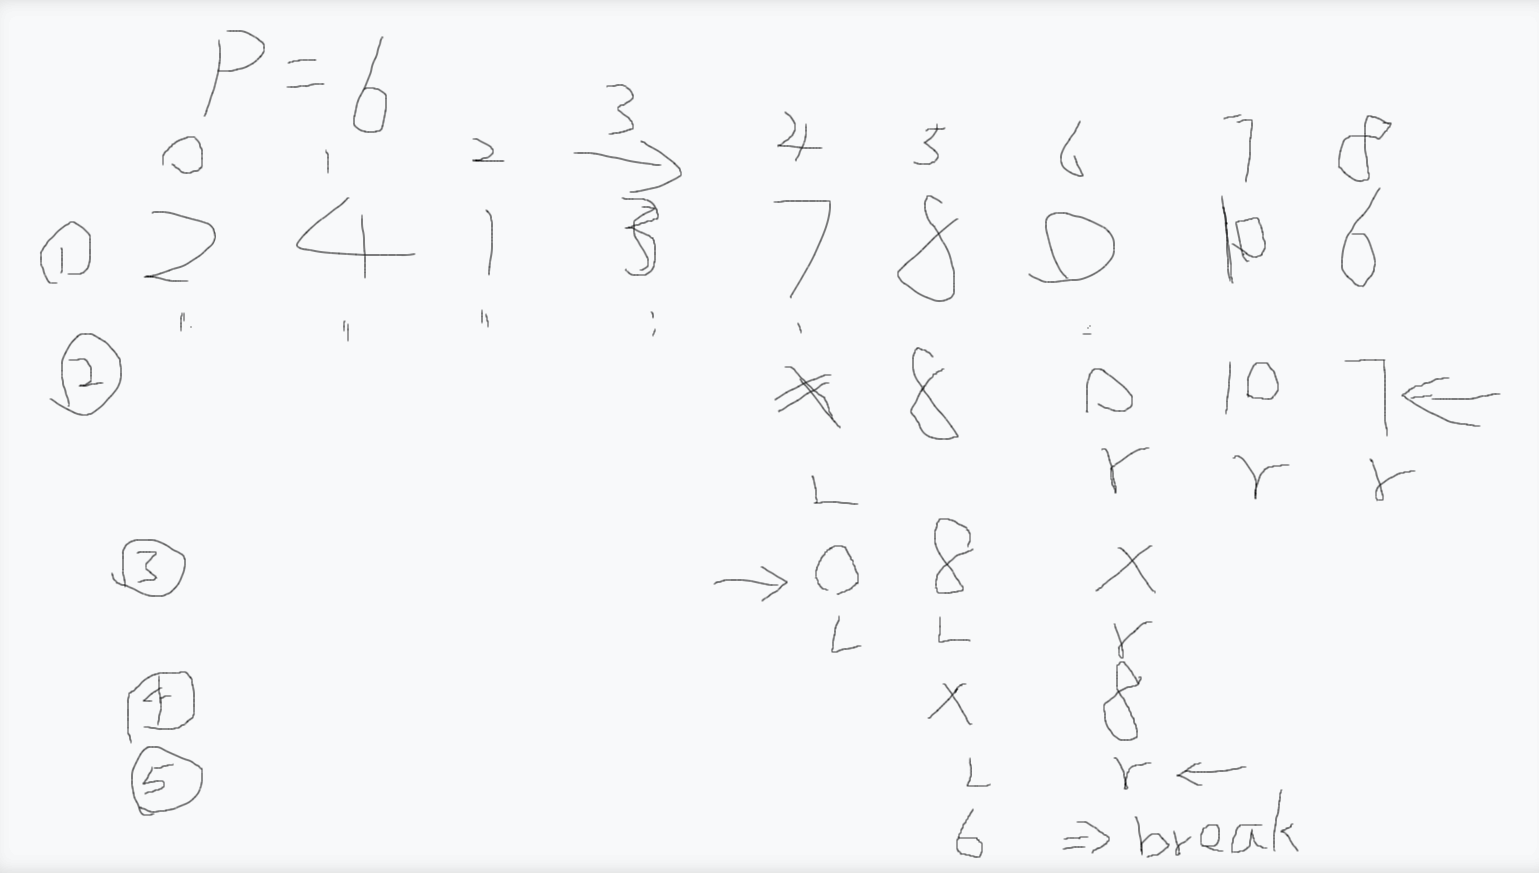 P = 6
0 1 2 3 → 4 5 6 7 8
① 2 4 1 3 7 8 0 10 6
② × 8 0 10 7 ←
L r r r
③ → 0 8 ×
L L r
④ × 8
⑤ L r ←
6 ⇒ break